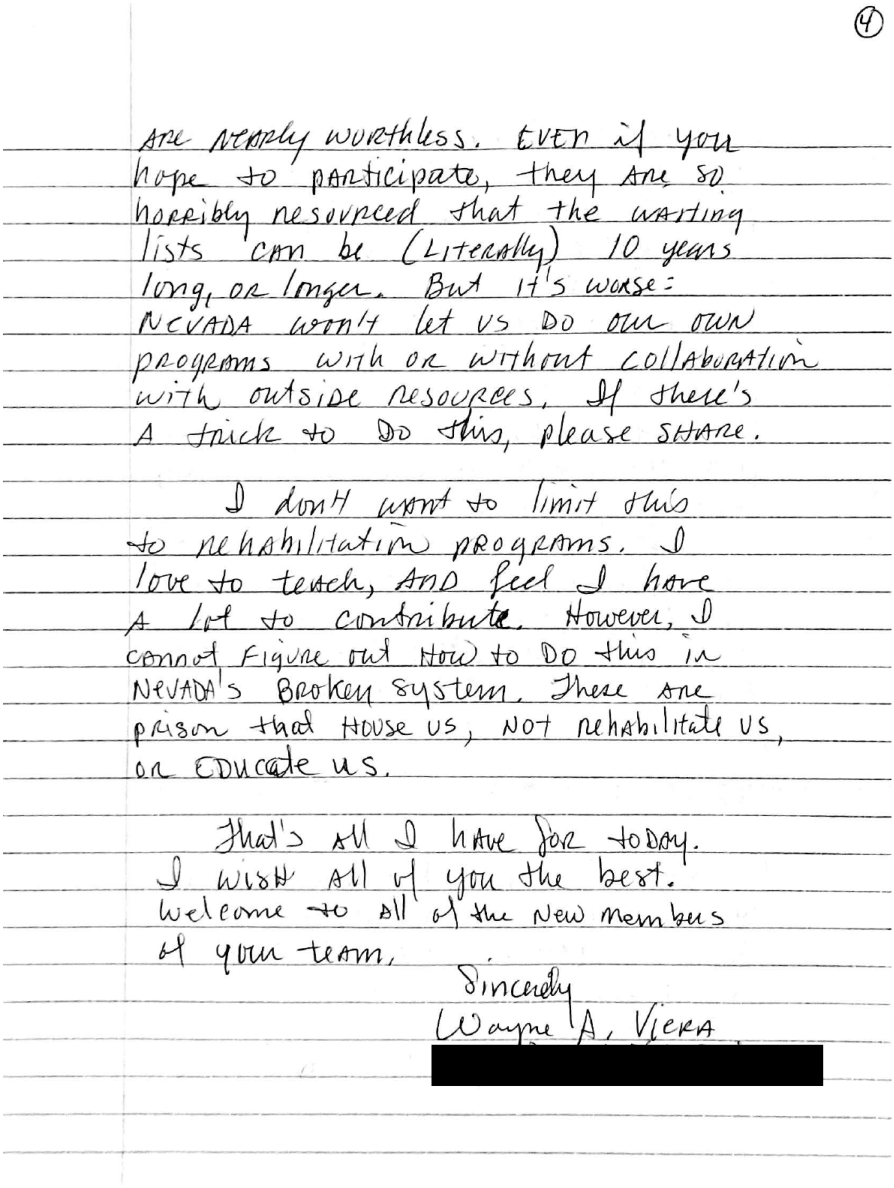 4
are nearly worthless. Even if you
hope to participate, they are so
horribly resourced that the waiting
lists can be (literally) 10 years
long, or longer. But it's worse:
Nevada won't let us do our own
programs with or without collaboration
with outside resources. If there's
a trick to do this, please share.
I don't want to limit this
to rehabilitation programs. I
love to teach, and feel I have
a lot to contribute. However, I
cannot figure out how to do this in
Nevada's broken system. These are
prison that house us, not rehabilitate us,
or educate us.
That's all I have for today.
I wish all of you the best.
Welcome to all of the new members
of your team.
Sincerely
Wayne A. Viera